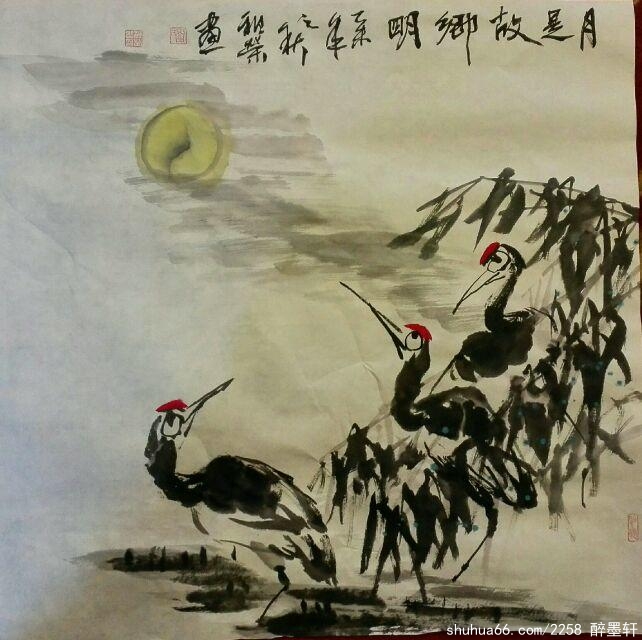 月是故鄉明 年之秋 畫
shuhua66.com/2258 醉墨轩